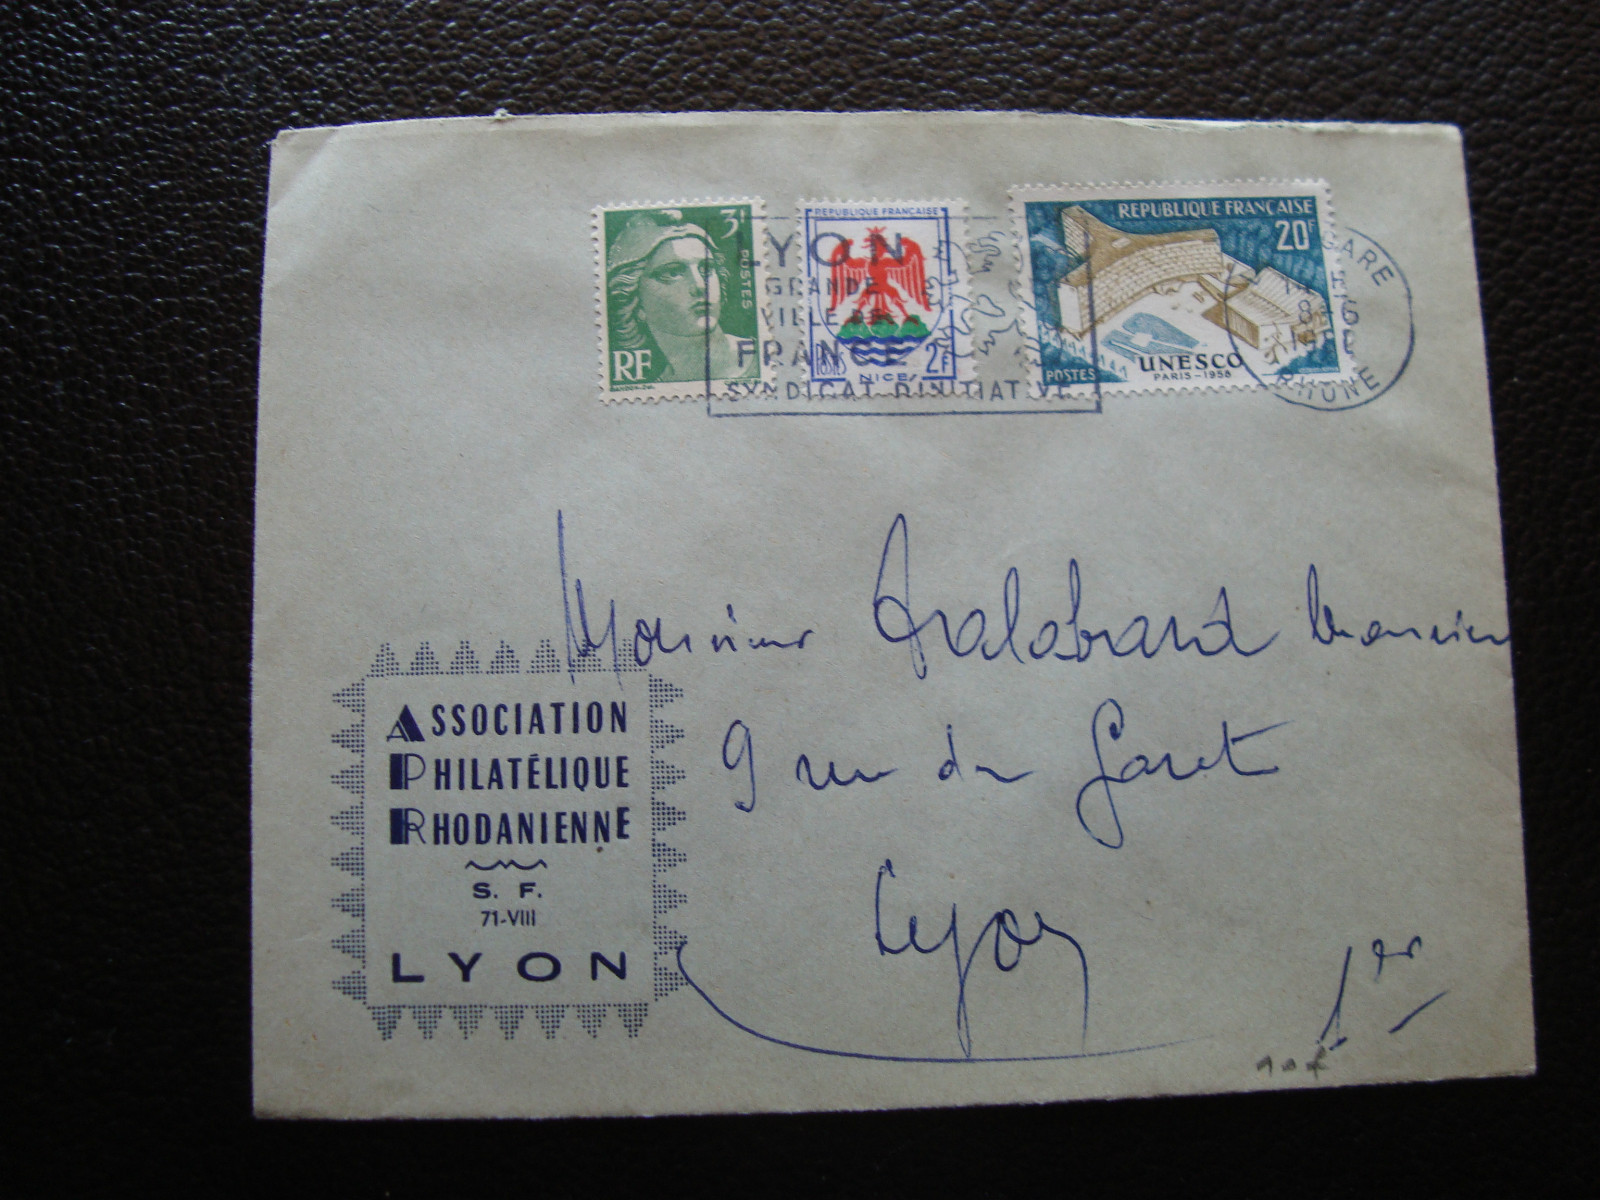 3F
POSTES
RF
REPUBLIQUE FRANÇAISE
POSTES
2F
NICE
REPUBLIQUE FRANÇAISE
20F
POSTES
UNESCO
PARIS-1958
LYON
GRANDE
VILLE DE
FRANCE
SYNDICAT D'INITIATIVE
GARE
8-6
RHONE
Monsieur
9 rue du Garet
Lyon
1er
ASSOCIATION
PHILATÉLIQUE
RHODANIENNE
S. F.
71-VIII
LYON